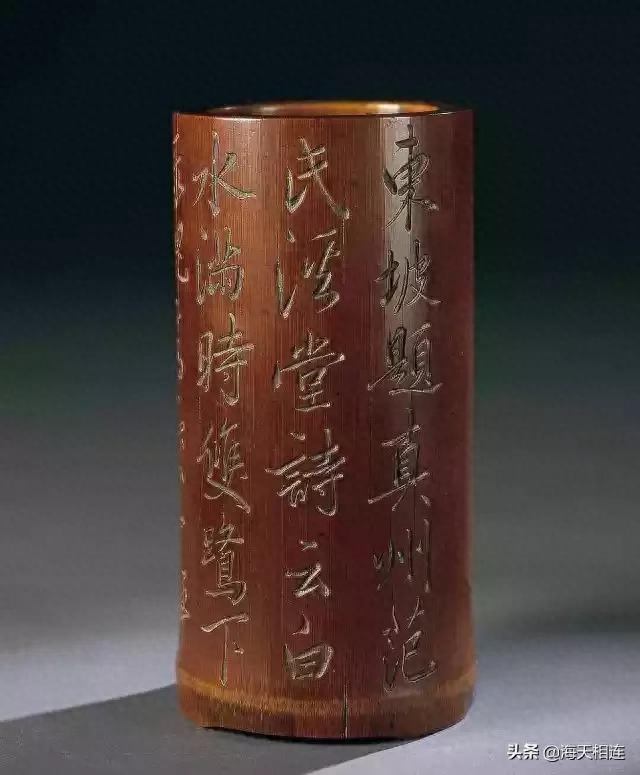 東坡題真州范
氏溪堂詩云白
水滿時雙鷺下
头条 @海天相连